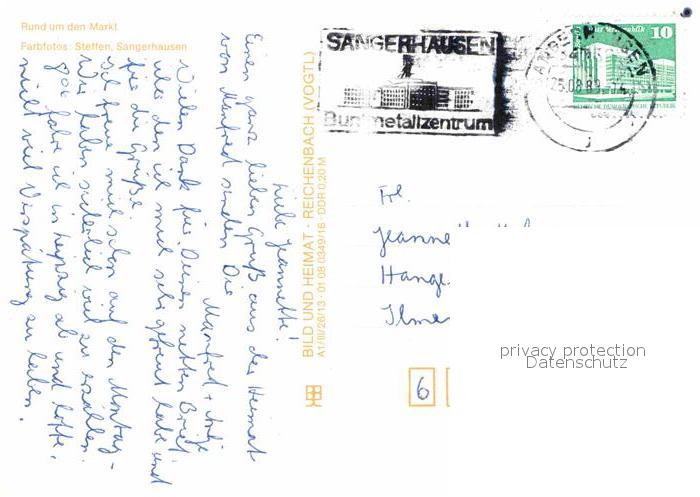 Rund um den Markt
Farbfotos: Steffen, Sangerhausen
Liebe Jeannette!
Einen ganz lieben Gruß aus der Heimat
von Manfred senden Dir
Manfred + Antje
Vielen Dank für Deinen netten Brief
über den ich mich sehr gefreut habe und
für die Grüße.
Ich freue mich schon auf den Montag -
Wir haben sicherlich viel zu erzählen.
fahre ich in Leipzig ab und hoffe,
nicht viel Verspätung zu haben.
BILD UND HEIMAT · REICHENBACH (VOGTL)
A1/III/26/13 · 01 08 0349/16 · DDR 0,20 M
SANGERHAUSEN
Buntmetallzentrum
10
Frl.
Jeanne
Hange
Ilme
6
privacy protection
Datenschutz